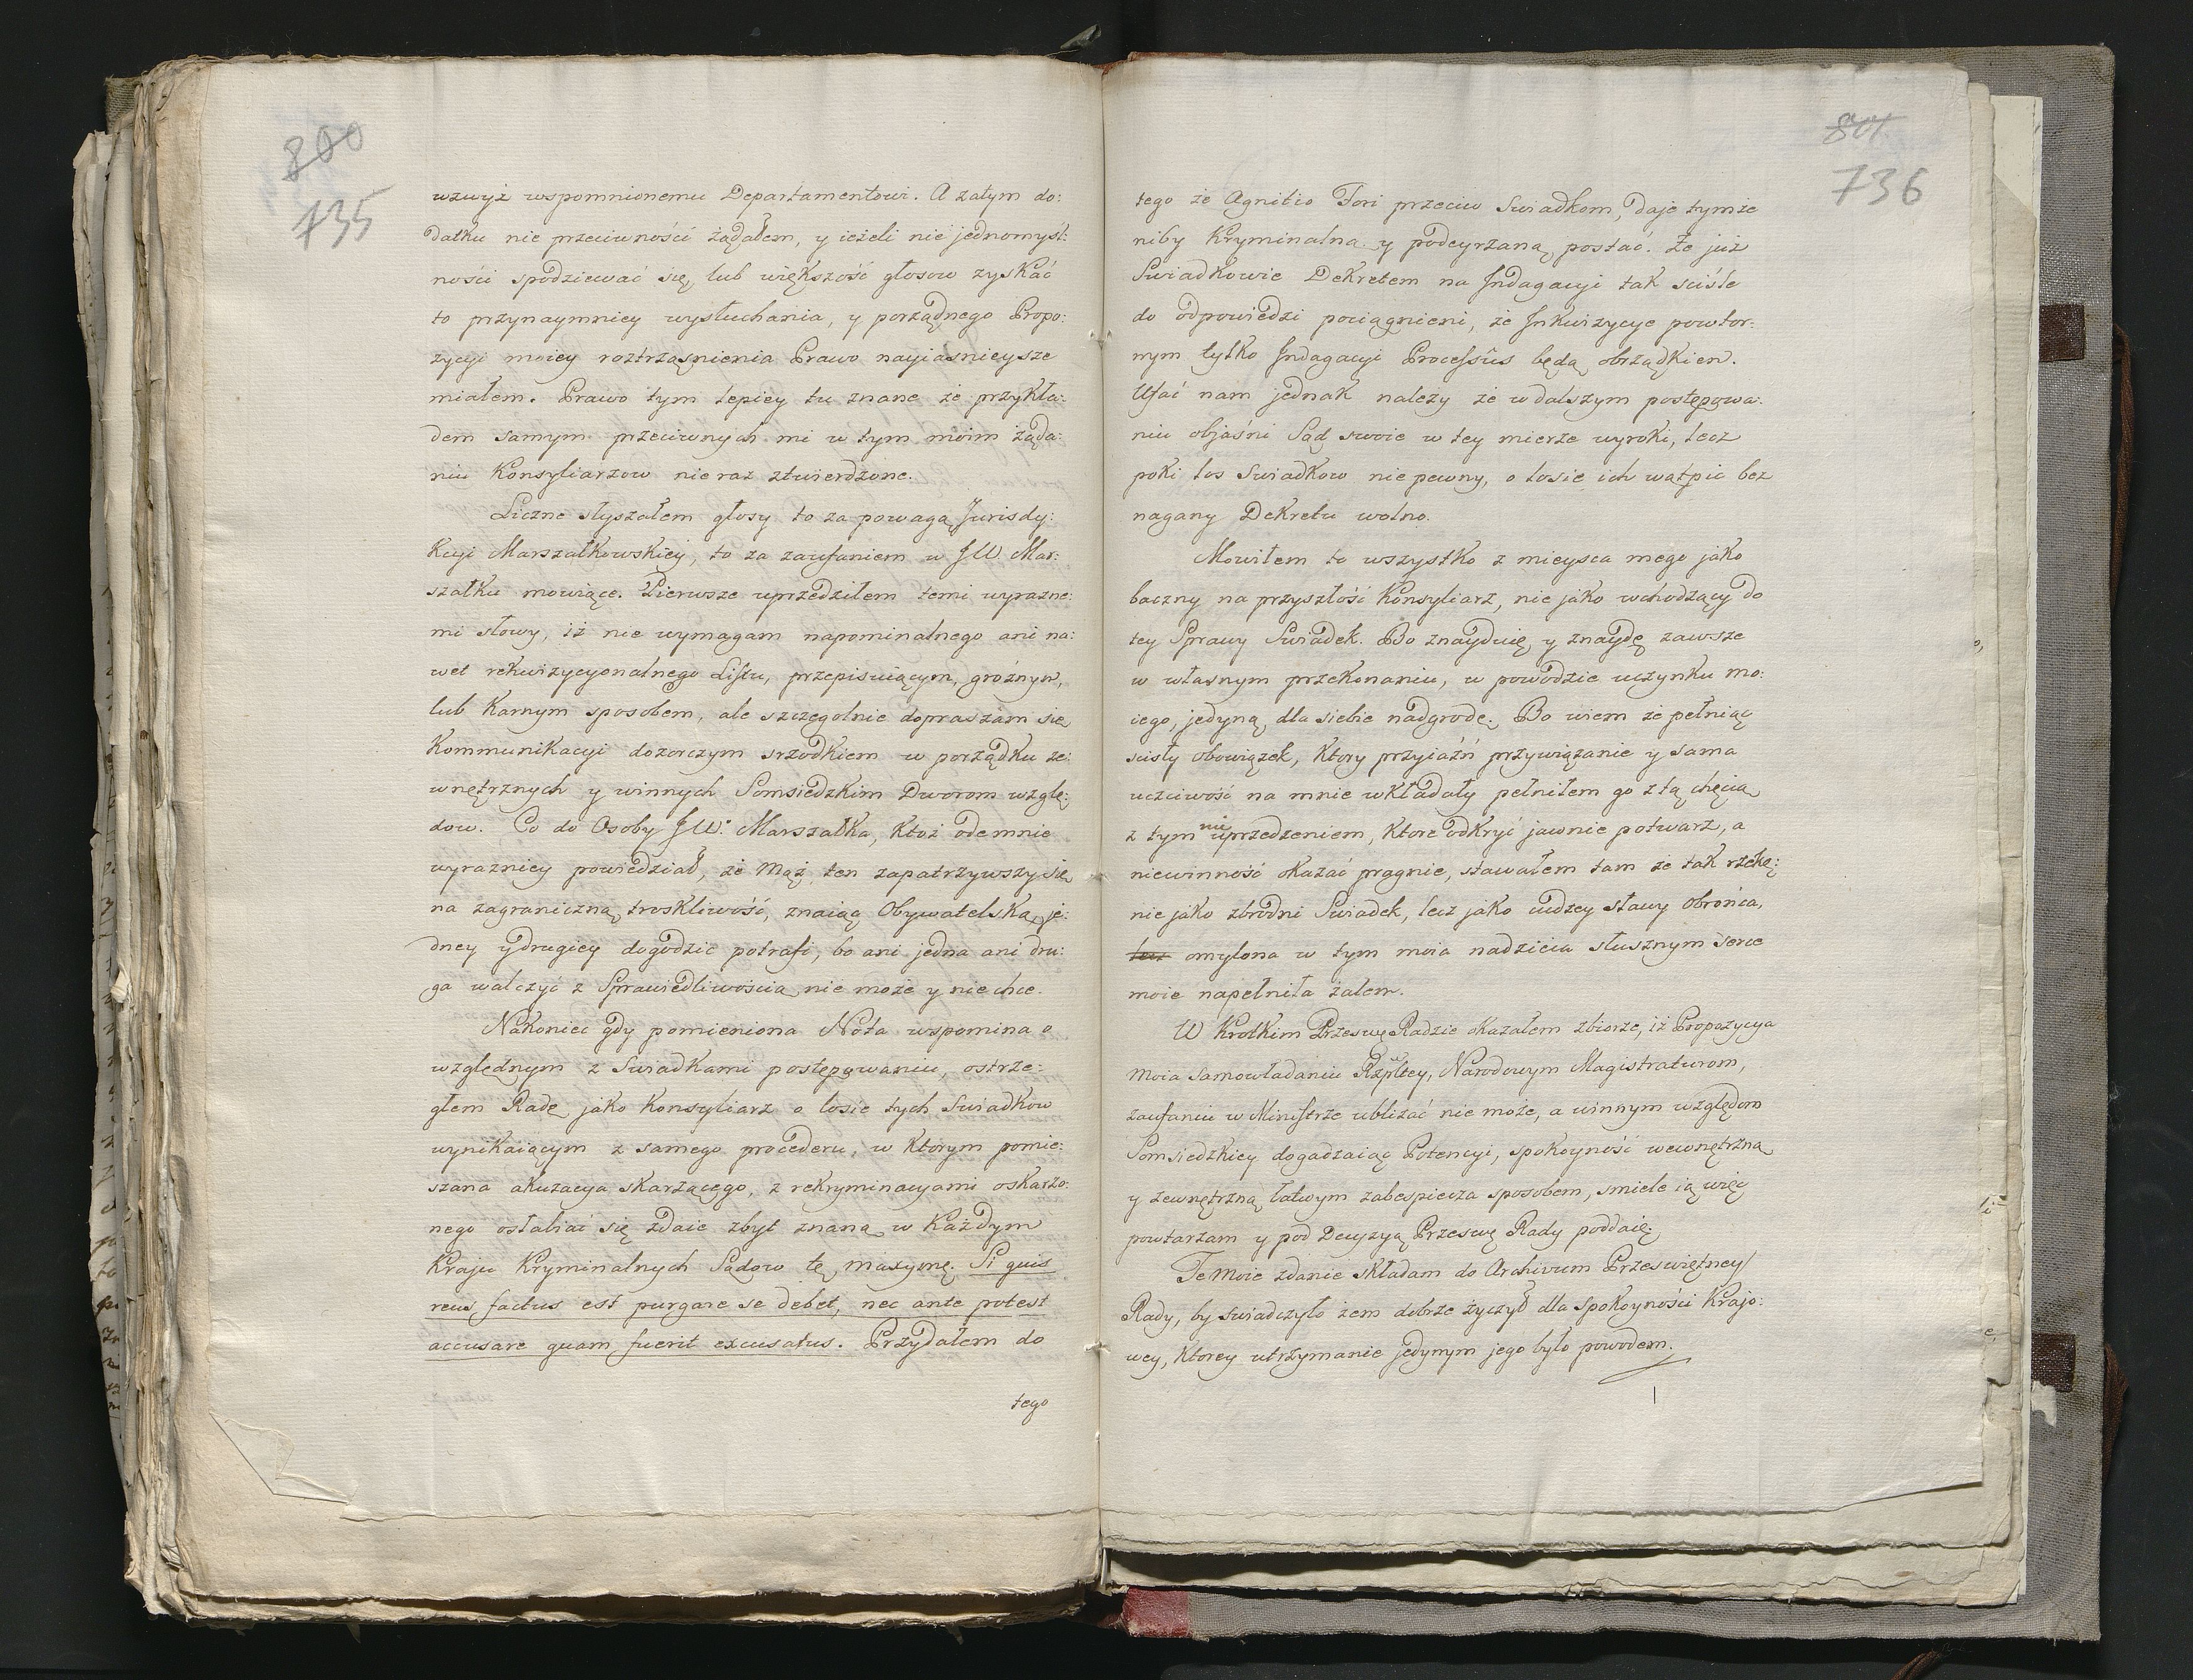 800
735
wzwyż wspomnionemu Departamentowi. A zatym do:
datku nie przeciwności żądałem, y ieżeli nie jednomyśl:
ności spodziewać się, lub większość głosow zyskać
to przynaymniey wysłuchania, y porządnego Propo:
zycyi moiey roztrząsnienia Prawo nayjasnieysze
miałem. Prawo tym lepiey tu znane że przykła:
dem samym przeciwnych mi w tym moim żąda:
niu Konsyliarzow nie raz ztwierdzone.
Liczne słyszałem głosy to za powagą Jurisdy:
kcyi Marszałkowskiey, to za zaufaniem w JW. Mar:
szałku mowiące. Pierwsze uprzedziłem temi wyrazne:
mi słowy, iż nie wymagam napominalnego ani na:
wet rekwizycyonalnego Listu, przepisuiącym, groźnym,
lub Karnym sposobem, ale szczegolnie dopraszam się
Kommunikacyi dozorczym srzodkiem w porządku ze:
wnętrznych y winnych Somsiedzkim Dworom wzglę:
dow. Co do Osoby JW. Marszałka, Ktoż odemnie
wyrazniey powiedział, że Mąż ten zapatrzywszy się
na zagraniczną troskliwość, znaiąc Obywatelską, je:
dney y drugiey dogodzić potrafi, bo ani jedna ani dru:
ga walczyć z Sprawiedliwością nie może y nie chce.
Nakoniec gdy pomieniona Nota wspomina o
względnym z Swiadkami postępowaniu, ostrze:
głem Radę jako Konsyliarz o losie tych Swiadkow
wynikaiącym z samego procederu, w Ktorym pomie:
szana akuzacya skarżącego, z rekryminacyami oskarżo:
nego osłabiać się zdaie zbyt znaną w Każdym
Kraju Kryminalnych Sądow tę maxymę. Si quis
reus factus est purgare se debet, nec ante potest
accusare quam fuerit excusatus. Przydałem do
tego
801
736
tego że Agnitio Fori przeciw Swiadkom, daje tymże
niby Kryminalną y podeyrzaną postać. Że już
Swiadkowie Dekretem na Indagacyi tak sciśle
do odpowiedzi pociągnieni, że Inkwizycye powtor:
nym tylko Indagacyi Processûs będą obrządkiem.
Ufać nam jednak należy że w dalszym postępowa:
niu objaśni Sąd swoie w tey mierze wyroki, lecz
poki los Swiadkow niepewny, o losie ich wątpić bez
nagany Dekretu wolno.
Mowiłem to wszystko z mieysca mego jako
baczny na przyszłość Konsyliarz, nie jako wchodzący do
tey Sprawy Swiadek. Bo znayduię y znaydę zawsze
w własnym przekonaniu, w powodzie uczynku mo:
iego, jedyną dla siebie nadgrodę. Bo wiem że pełniąc
scisły obowiązek, Ktory przyiaźń przywiązanie y sama
uczciwość na mnie wkładały pełniłem go z tą chęcią
z tym nie uprzedzeniem, Ktore odkryć jawnie potwarz, a
niewinność okazać pragnie, stawałem tam że tak rzekę:
nie jako zbrodni Swiadek, lecz jako cudzey sławy obrońca,
lecz omylona w tym moia nadzieia słusznym serce
moie napełniła żalem.
W Krotkim Przeswę Radzie okazałem zbiorze, iż Propozycya
moia samowładaniu Rzpltey, Narodowym Magistraturom,
zaufaniu w Ministrze ubliżać nie może, a winnym względom
Somsiedzkiey dogadzaiąc Potencyi, spokoyność wewnętrzną
y zewnętrzną łatwym zabespiecza sposobem, smiele ią więc
powtarzam y pod Decyzyą Przeswę Rady poddaię.
Te moie zdanie składam do Archivum Przeswiętney
Rady, by swiadczyło żem dobrze życzył dla Spokoyności Krajo:
wey, Ktorey utrzymanie jedynym jego było powodem.